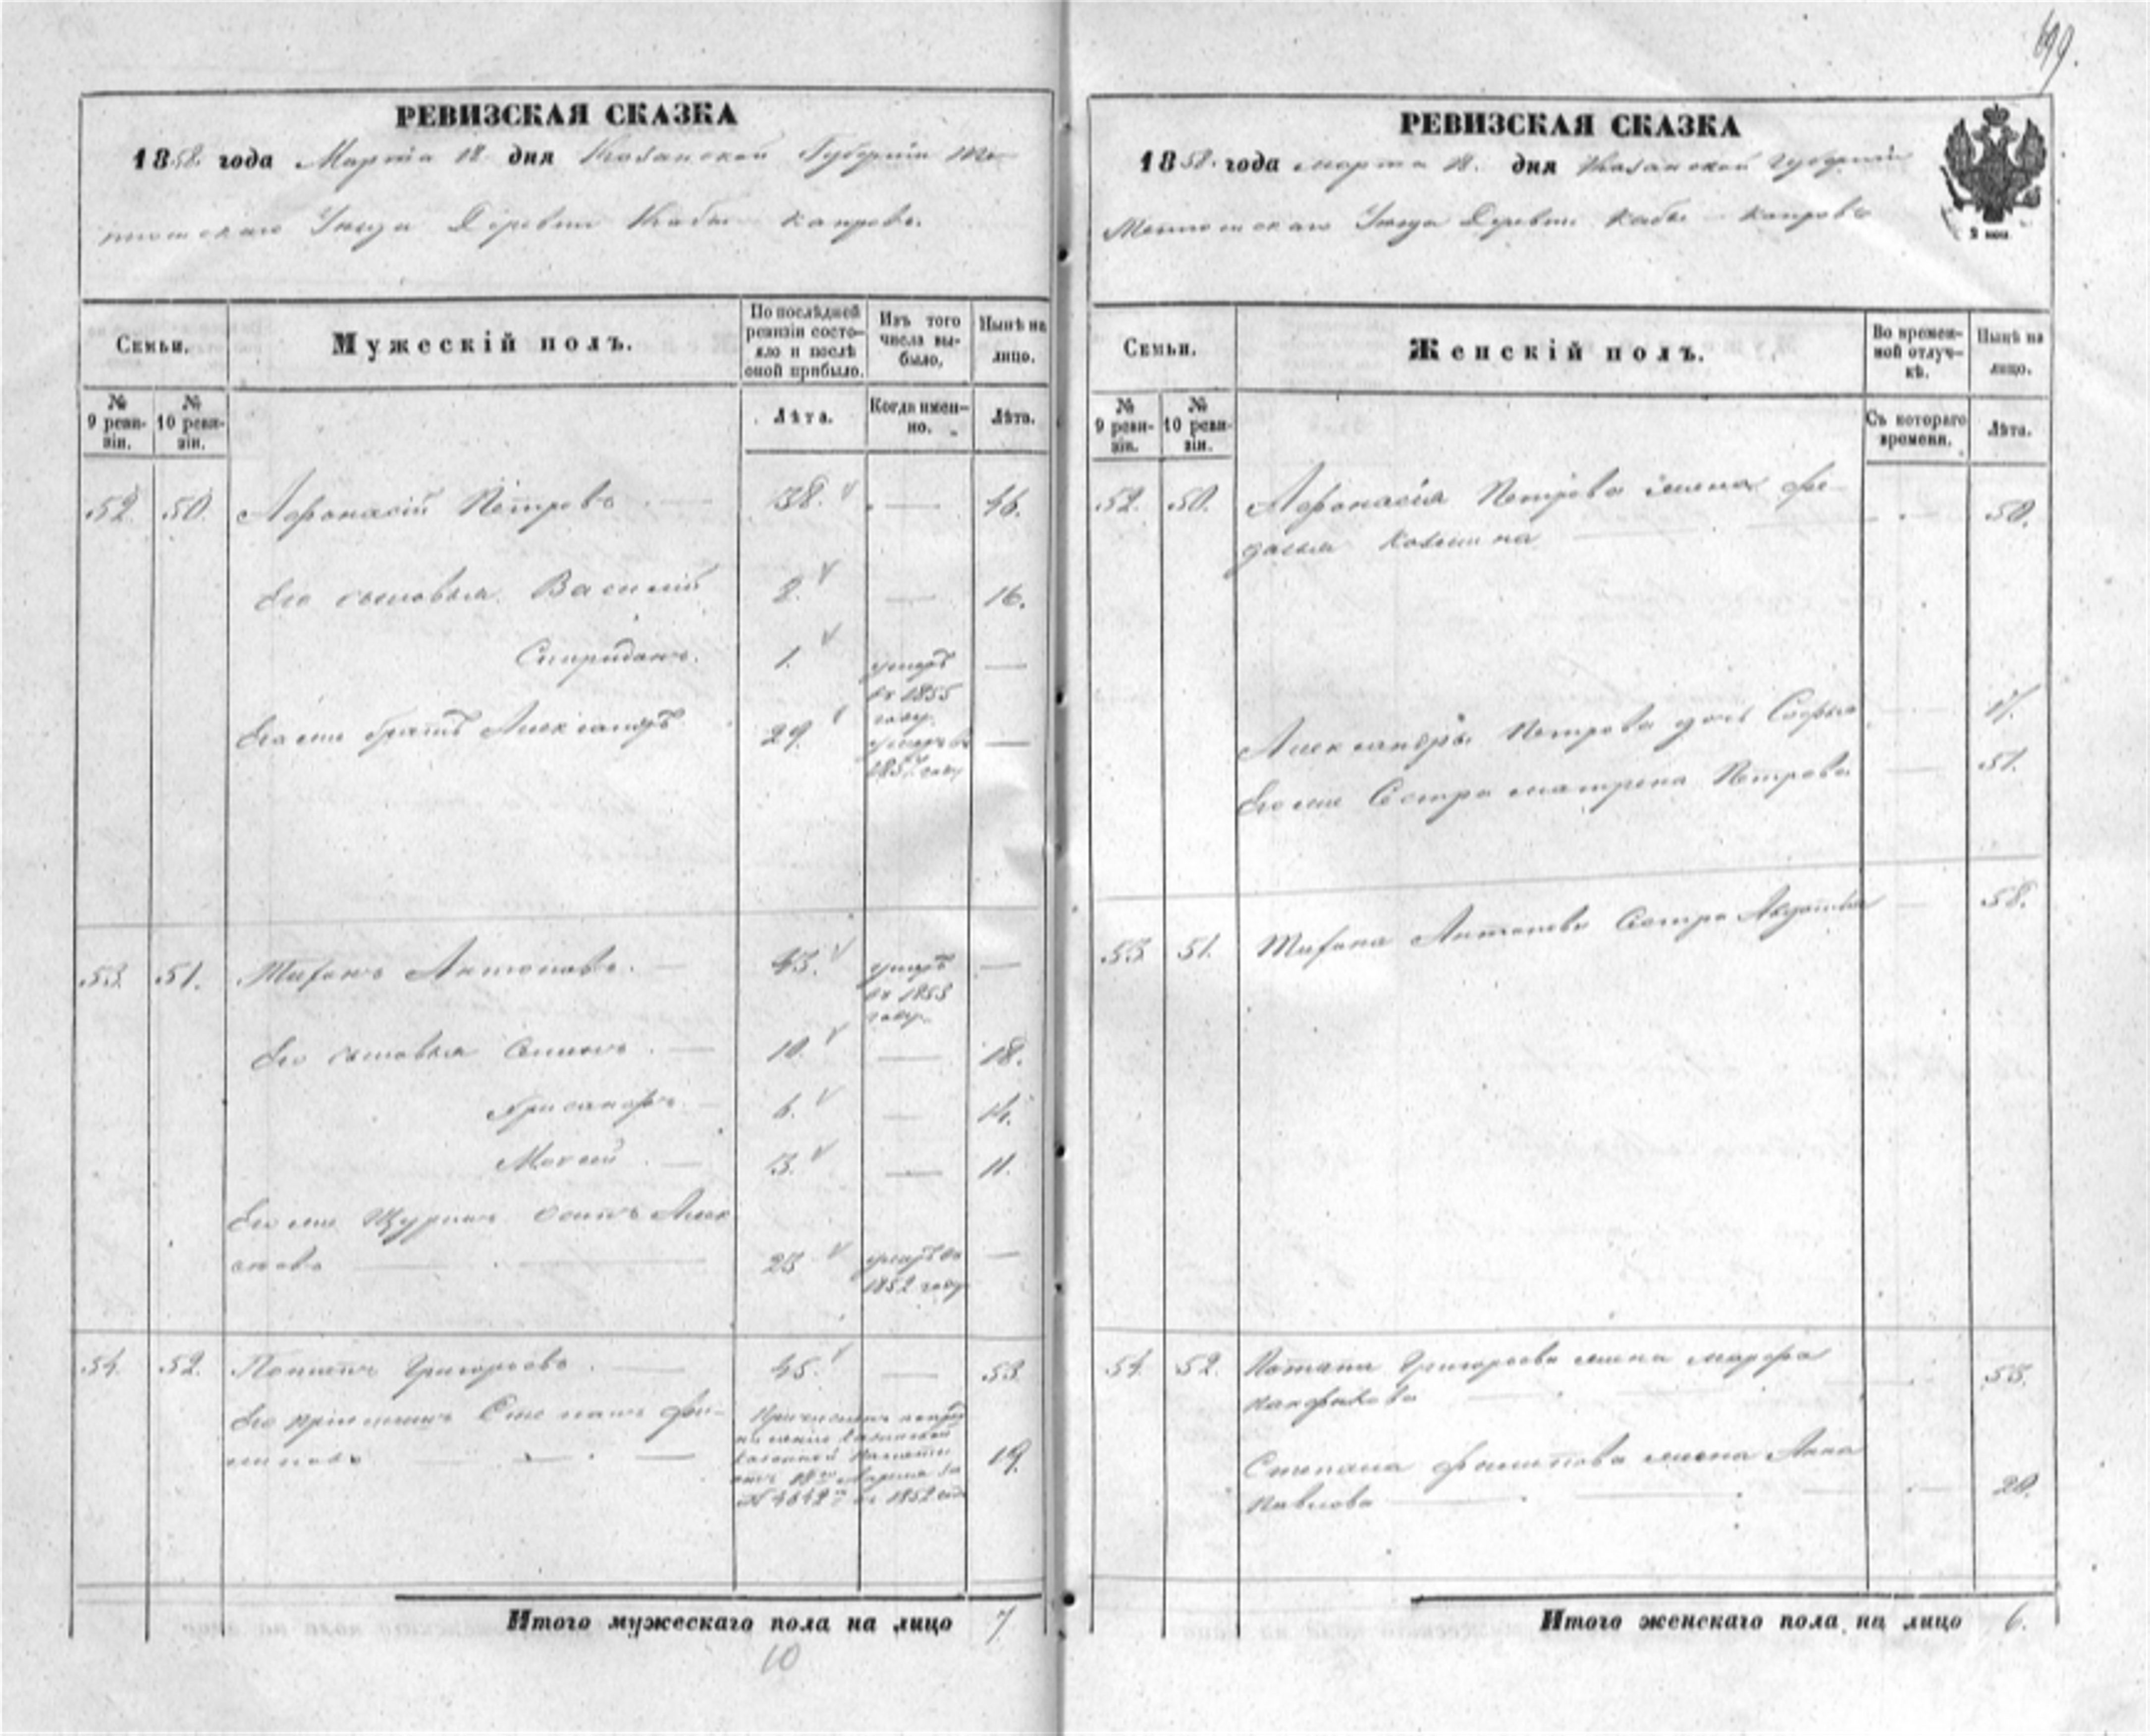 699.
РЕВИЗСКАЯ СКАЗКА
1858. года Марта 18 дня Казанской Губернии Ма-
мышскаго Уезда Деревни Кабы Капровъ.
Семьи.
Мужескій полъ.
По послѣдней ревизіи состояло и послѣ оной прибыло.
Изъ того числа выбыло,
Нынѣ на лицо.
№ 9 ревизіи.
№ 10 ревизіи.
Лѣта.
Когда именно.
Лѣта.
52. 50. Афонасій Петровъ 38. 46.
Его сыновья Василій 8. 16.
Спиридонъ. 1. умеръ въ 1855 году
Его же братъ Александръ 29. умеръ въ году
53. 51. Антоновъ. 43. умеръ въ 1853 году
Его сыновья Семенъ 10. 18.
6. 14.
Мокей 3. 11.
Его же Шуринъ Осипъ Алек
23 умеръ въ 1852 году
54. 52. Потапъ Григорьевъ 45. 53.
Его пріемышъ Степанъ Фи-
липовъ 19.
Казанской
Казенной Палаты
отъ 18 Апреля за
№ 4642 1852 года
Итого мужескаго пола на лицо 7
10
РЕВИЗСКАЯ СКАЗКА
1858. года марта 18. дня Казанской Губерніи
Уезда Деревни Кабы Капровъ
2 коп.
Семьи.
Женскій полъ.
Во временной отлучкѣ.
Нынѣ на лицо.
№ 9 ревизіи.
№ 10 ревизіи.
Съ котораго времени.
Лѣта.
52. 50. Афонасія Петрова жена Фе-
досья 50.
Александра Петрова дочь Софья 17.
Его же Сестра матрена Петрова 51.
53. 51. Антонова Сестра Авдотья 58.
54. 52. Потапа Григорьева жена марфа 53.
Степана Филипова жена Анна
Павлова 20.
Итого женскаго пола на лицо 6.